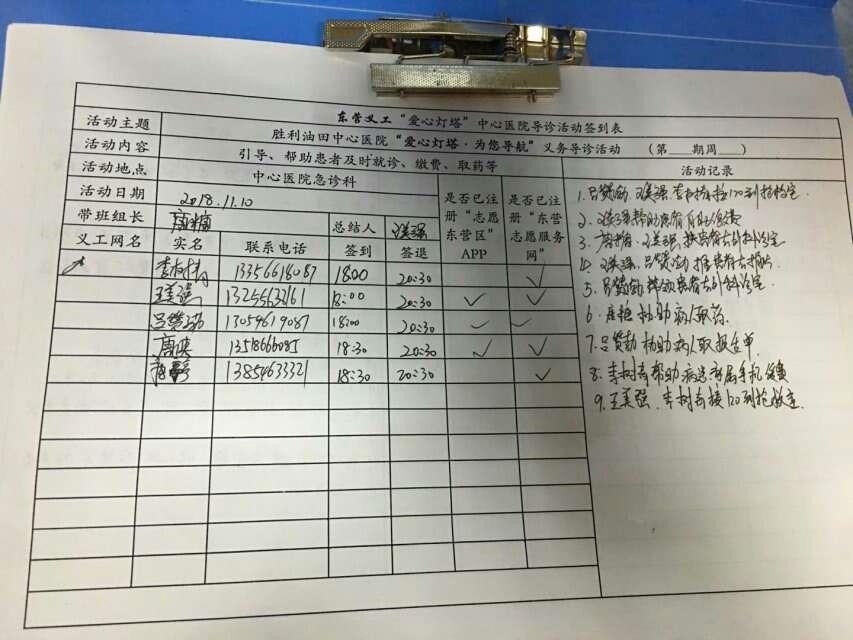 东营义工“爱心灯塔”中心医院导诊活动签到表
活动主题 胜利油田中心医院“爱心灯塔·为您导航”义务导诊活动 (第 期周 )
活动内容 引导、帮助患者及时就诊、缴费、取药等
活动地点 中心医院急诊科
活动日期 2018.11.10
带班组长 总结人 王美强
义工网名 实名 联系电话 签到 签退 是否已注册“志愿东营区”APP 是否已注册“东营志愿服务网”
13356618087 18:00 20:30 √
王美强 13255633161 18:00 20:30 √ √
吕赞勋 13054619087 18:00 20:30 √ √
13518666085 18:30 20:30 √ √
13854633321 18:30 20:30 √
活动记录
1.吕赞勋、王美强、李树奇接120到抢救室.
2.王美强帮助患者自助缴费
3.王美强、扶患者去外科诊室
4.王美强、吕赞勋推患者去
5.吕赞勋带领患者去外科诊室.
6.协助病人取药.
7.吕赞勋协助病人取报告单.
8.李树奇帮助病患家属手机缴费
9.王美强、李树奇接120到抢救室.